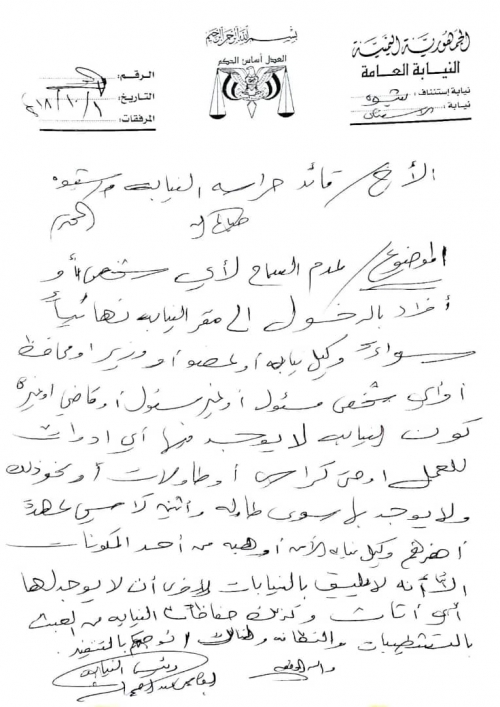 بسم الله الرحمن الرحيم
الجمهورية اليمنية
النيابة العامة
نيابة إستئناف : شبوه
نيابة :
العدل أساس الحكم
الرقم :
التاريخ : ٢٠١٨/١٠/١
المرفقات :
الأخ / قائد حراسه النيابه م شبوه
المحترم
الموضوع / عدم السماح لأي شخص أو
أفراد بالدخول الى مقر النيابه نهائياً
سواءً وكيل نيابه أو عضو أو وزير او محافظ
أو أي شخص مسئول أو غير مسئول أو قاضي او غيره
كون النيابه لا يوجد فيها أي ادوات
للعمل او حتى كراسي أو طاولات أو نحو ذلك
ولا يوجد بها سوى طاوله واثنين كراسي
أحضرهم وكيل نيابه الأمن أو هبه من أحد المكونات
الا أنه لا يليق بالنيابات الاخرى أن لا يوجد لها
أي أثاث وكذلك حفاظاً النيابه من العبث
بالتشطيبات والنظافه ولذلك أوجهكم بالتنفيذ
والله الموفق
رئيس النيابه